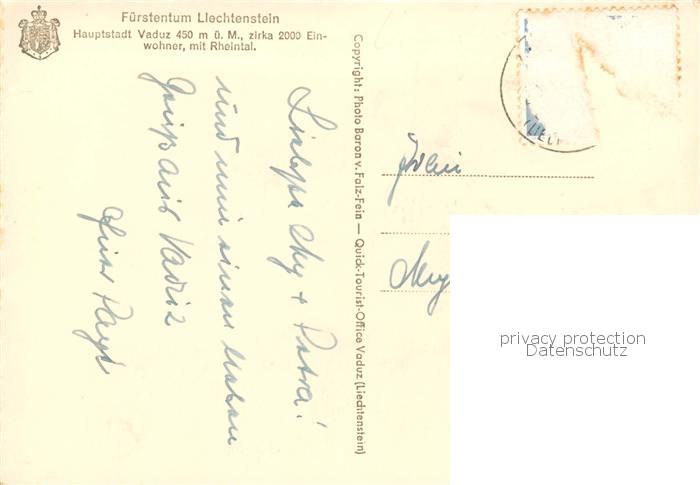 Fürstentum Liechtenstein
Hauptstadt Vaduz 450 m ü. M., zirka 2000 Ein-
wohner, mit Rheintal.
Copyright: Photo Baron v. Falz-Fein — Quick-Tourist-Office Vaduz (Liechtenstein)
+ Petra!
und nun einen lieben
Gruß aus Vaduz
privacy protection
Datenschutz